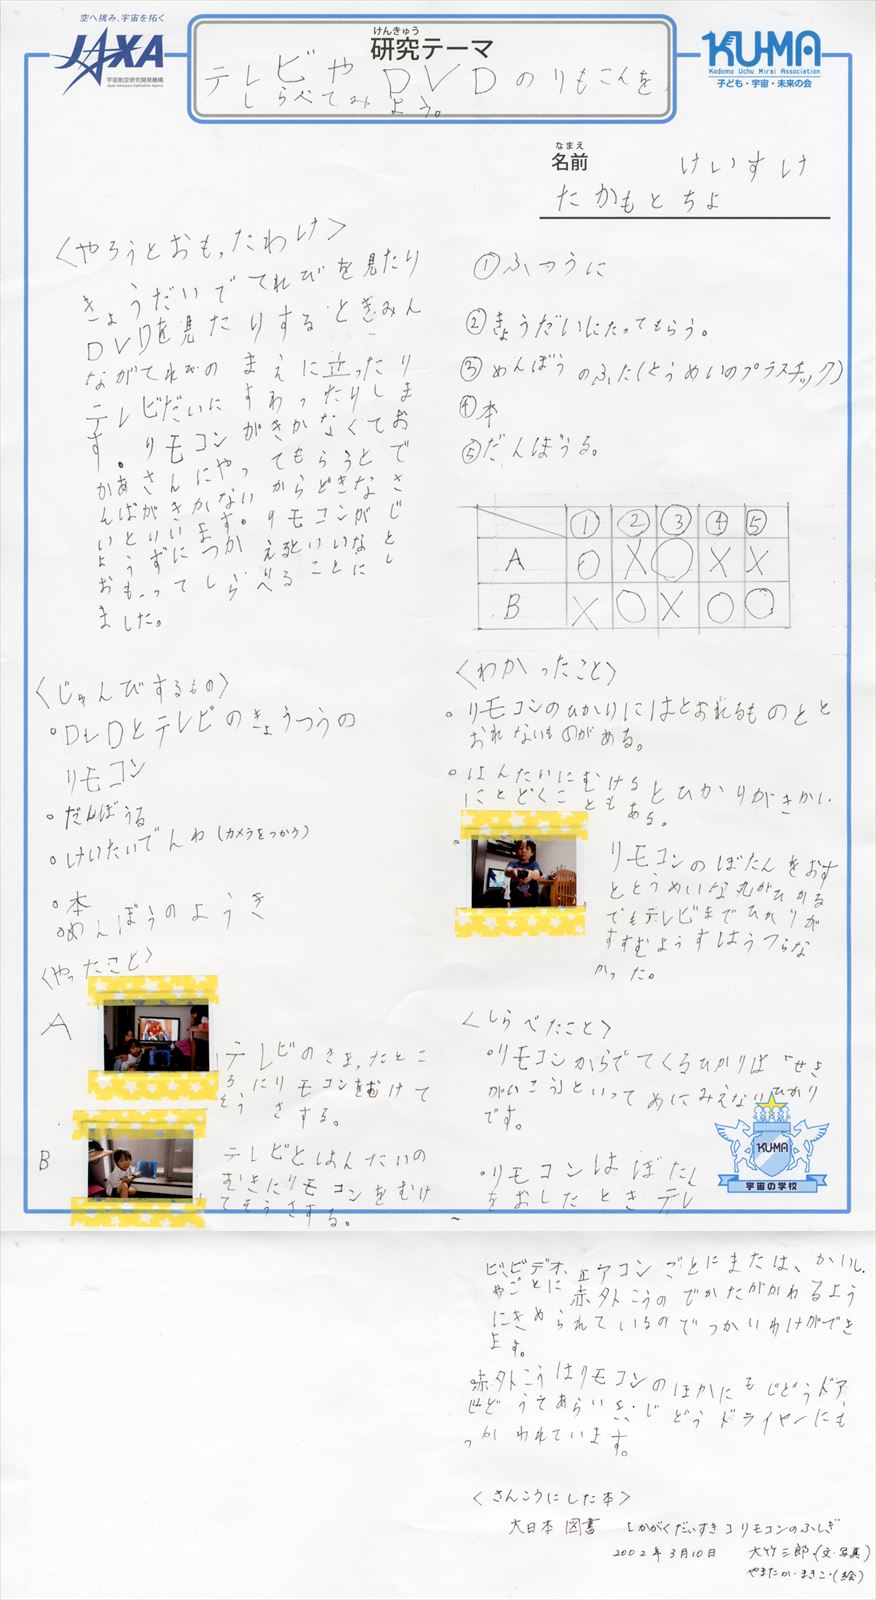 空へ挑み、宇宙を拓く
JAXA
宇宙航空研究開発機構
Japan Aerospace Exploration Agency
けんきゅう
研究テーマ
テレビやDVDのりもこんを
しらべてみよう。
KU-MA
Kodomo Uchu Mirai Association
子ども・宇宙・未来の会
なまえ
名前
けいすけ
たかもとちよ
〈やろうとおもったわけ〉
きょうだいでてれびを見たり
DVDを見たりするときみん
ながてれびのまえに立ったり
テレビだいにすわったりしま
す。リモコンがきかなくてお
かあさんにやってもらうとで
んぱがきかないからどきなさ
いといいます。リモコンがじ
ょうずにつかえるといいなと
おもってしらべることにし
ました。
〈じゅんびするもの〉
・DVDとテレビのきょうつうの
リモコン
・だんぼうる
・けいたいでんわ(カメラをつかう)
・本
・めんぼうのようき
〈やったこと〉
A
テレビのきまったとこ
ろにリモコンをむけて
そうさする。
B
テレビとはんたいの
むきにリモコンをむけ
てそうさする。
①ふつうに
②きょうだいにたってもらう。
③めんぼうのふた(とうめいのプラスチック)
④本
⑤だんぼうる。
① ② ③ ④ ⑤
A ○ X ○ X X
B X ○ X ○ ○
〈わかったこと〉
・リモコンのひかりにはとおれるものとと
おれないものがある。
・はんたいにむけるとひかりがきかい
にとどくこともある。
・リモコンのぼたんをおす
ととうめいな丸がひかる
でもテレビまでひかりが
すすむようすはうつらな
かった。
〈しらべたこと〉
・リモコンからでてくるひかりは「せき
がいこう」といってめにみえないひかり
です。
・リモコンはぼたん
をおしたときテレ
KU-MA
宇宙の学校
ビ、ビデオ、エアコンごとにまたは、かいし
ゃごとに赤外こうのでかたがかわるよう
にきめられているのでつかいわけができ
ます。
・赤外こうはリモコンのほかにもじどうドア、
じどうてあらいき、じどうドライヤーにも
つかわれています。
〈さんこうにした本〉
大日本図書 [かがくだいすき]リモコンのふしぎ
2002年3月10日 大竹三郎・(文・写真)
やまたか・まきこ・(絵)